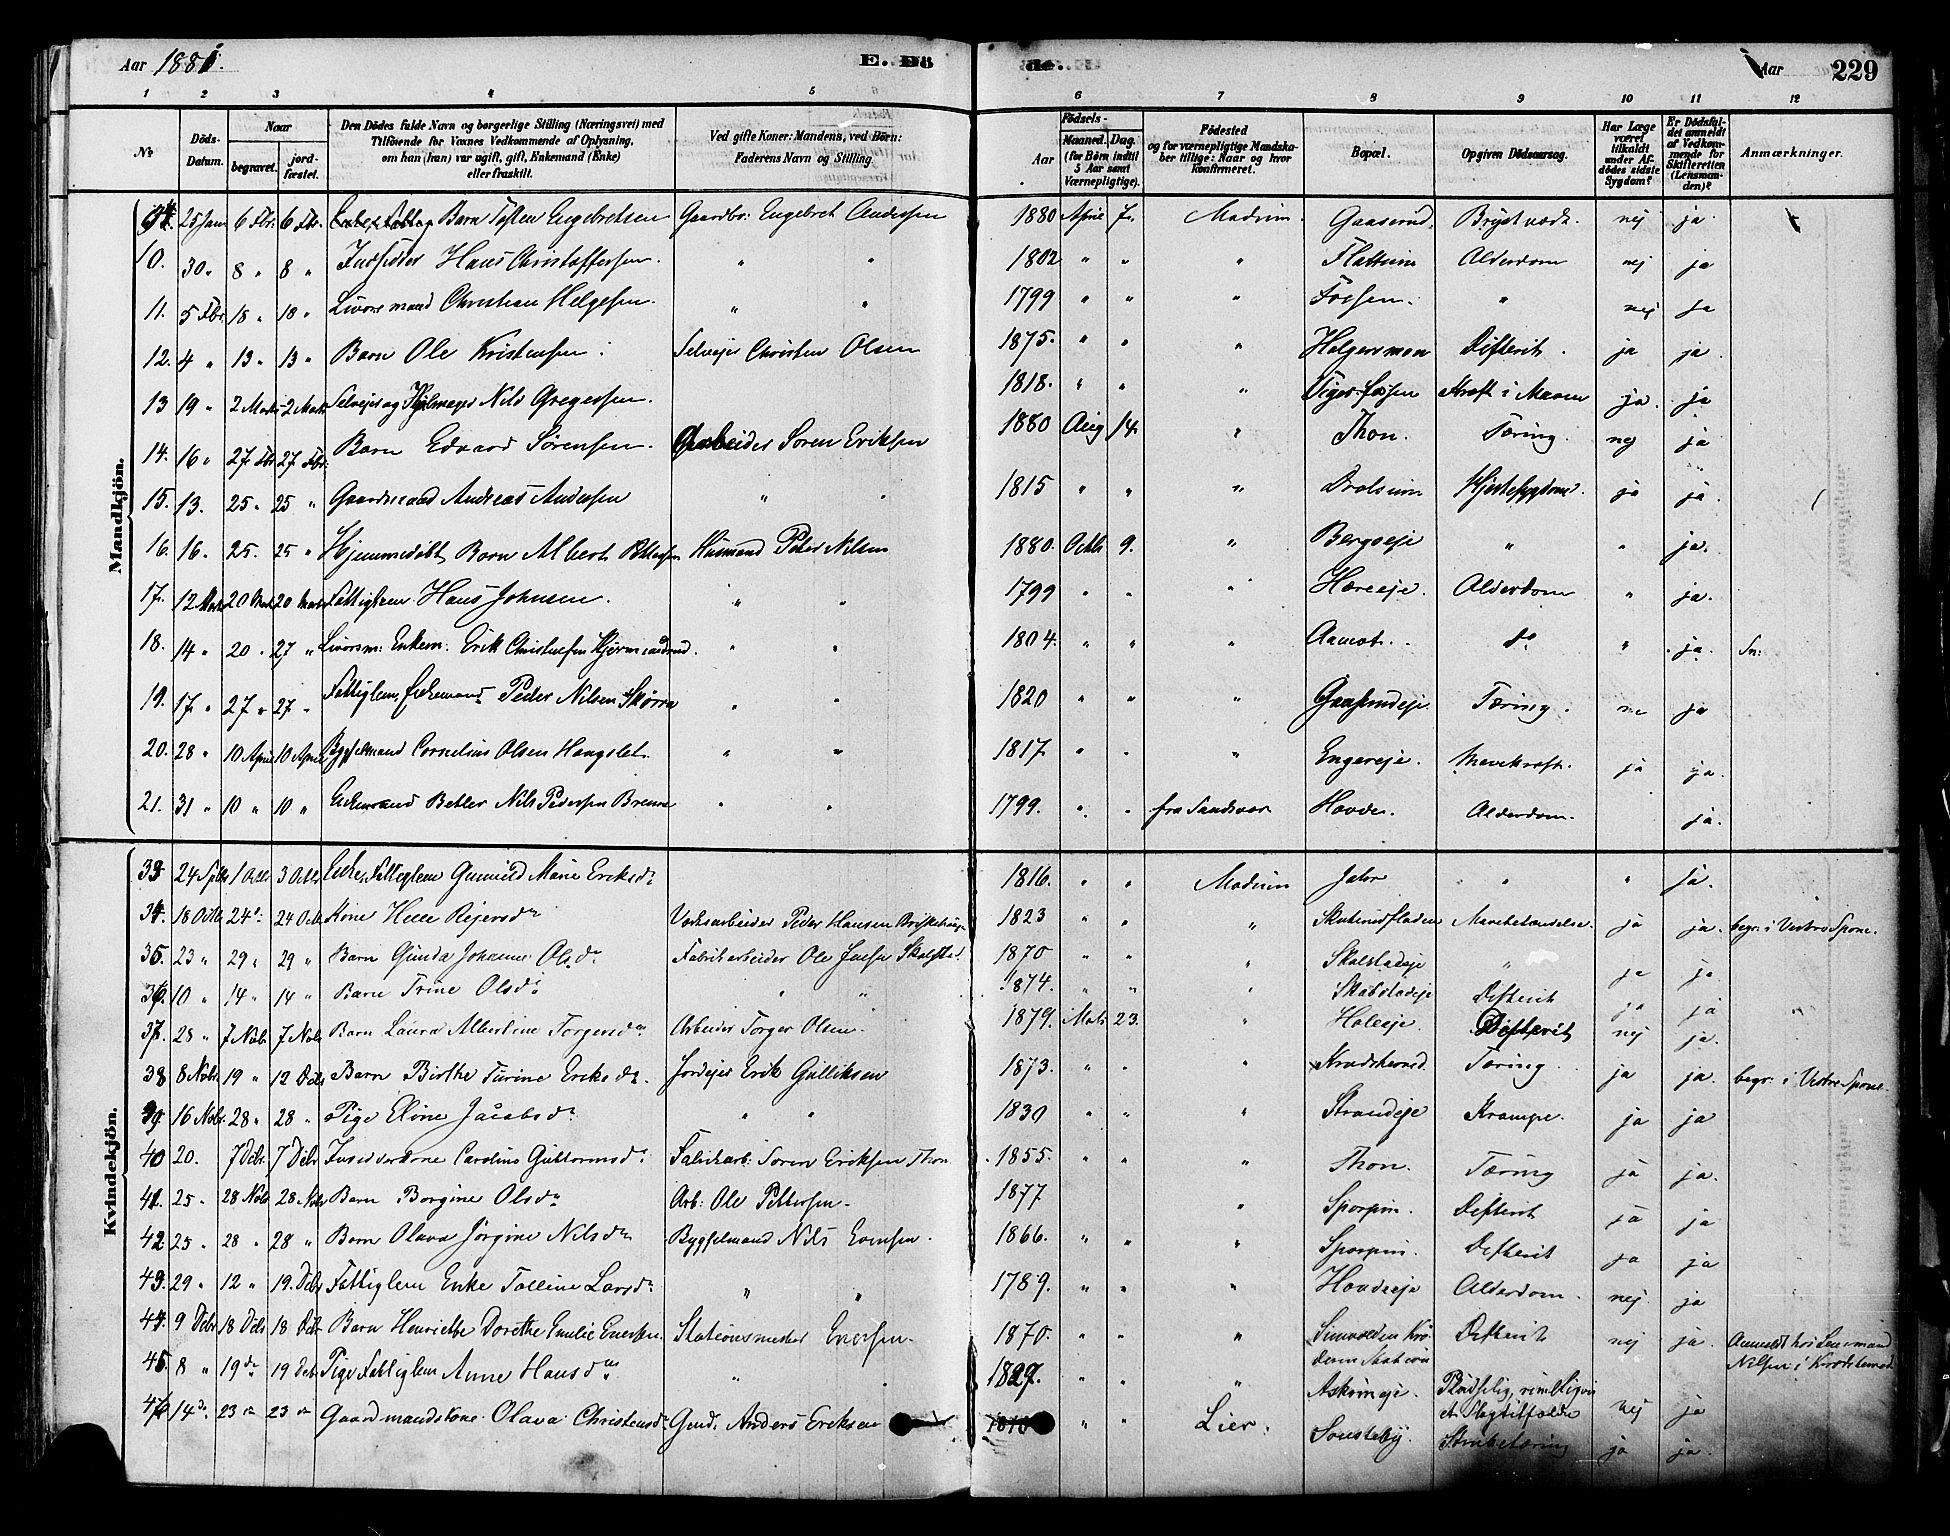 Aar 1881.
E. Dö
de.
Aar
229
1 2 3 4 5 6 7 8 9 10 11 12
№
Döds-Datum.
Naar
begravet. jordfæstet.
Den Dödes fulde Navn og borgerlige Stilling (Næringsvei) med
Tilföiende for Voxnes Vedkommende af Oplysning,
om han (hun) var ugift, gift, Enkemand (Enke)
eller fraskilt.
Ved gifte Koner: Mandens, ved Börn:
Faderens Navn og Stilling.
Födsels-
Aar
Maaned. Dag.
(for Börn indtil
5 Aar samt
Værnepligtige).
Födested
og for værnepligtige Mandskaber tillige: Naar og hvor
konfirmeret.
Bopæl.
Opgiven Dödsaarsag.
Har Læge
været
tilkaldt
under Afdödes sidste
Sygdom?
Er Dödsfaldet anmeldt
af Vedkommende for
Skifteretten
(Lensmanden)?
Anmærkninger.
Mandkjön.
25 Jan 6 Fbr: 6 Fbr. Barn Torsten Engebretsen Gaardbr: Engebret Andersen 1880 April 7. Modum. Gaaserud. nej ja.
10. 30 " 8 " 8 " Indsidder Hans Christoffersen. " " 1802 " " " Flattum Alderdom nej ja
11. 5 Fbr 18 " 18 " Livørsmand Christian Helgesen. " " 1799 " " " Fossen. " nej ja
12. 4 " 13 " 13 " Barn Ole Kristensen. Selvejer Christen Olsen 1875. " " " Helgersmoen Difterit. ja ja.
13 19 " 2 Marts 2 Marts Selvejer og Hjulmager Nils Gregersen. 1818. " " " Kræft i Maven ja. ja
14. 16 " 27 Fbr 27 Fbr. Barn Edvard Sørensen. Arbeider Soren Eriksen 1880 Aug 14. " Thon. Tæring. nej ja
15. 13. 25 " 25 " Gaardmand Andreas Andersen " " 1815 " " " Drolsum Hjertesygdom. ja ja.
16. 16 " 25. 25 " Hjemmedøbt Barn Albert Husmand Peter Nilsen 1880. Octbr 9. " Bergseje " " ja.
17. 12 Marts 20 Marts 20 Marts Fattiglem Hans Johnsen. " " 1799 " " " Hæreeje. Alderdom " ja.
18. 14 " 20 " 27 " Livørsm: Enkem: Erik Christensen " " 1804. " " " Aamot. do " ja.
19. 17 " 27 " 27 " Fattiglem, Enkemand Peder Nilsen Skørra " " 1820 " " " Gaaserudeje. Tæring. ja
20. 28 " 10 April 10 April Bygselmand Cornelius Olsen Haugslet. " " 1817 " " " Engereje. Mavekræft. ja ja.
21. 31 " 10 " 10 " Enkemand Betler Nils Pedersen Brenna " " 1799. " " fra Sandsvær Hovde. Alderdom. ja.
Kvindekjön.
33 24 Sptbr 1 Octbr 3 Octbr Enke, Fattiglem Gunild Marie Eriksdr 1816. " " Modum " " ja.
34. 18 Octbr 24 24 Octbr Kone Helle Rejersdr Værksarbeider Peder Hansen 1823 " " " Skuterudfladen Mavebetændelse. ja ja. begr. i Vestre Spone.
35. 23 " 29 " 29 " Barn Gunda Johanne Olsdr Fabrikarbeider Ole Jensen 1870 " " " Skalstadeje " ja ja.
36. 10 " 14 " 14 " Barn Trine Olsdr " " 1874. " " " Skalstadeje Difterit ja ja
37. 28 " 7 Nobr 7 Nobr Barn Laura Albertine Torgersdr Arbeider Torger Olsen. 1879. Marts 23. " Holeeje. Difterit nej ja.
38 8 Nobr. 19 " 12 Debr Barn Birthe Turine Eriksdr. Jordejer Erik Gulliksen 1873. " " " Tæring. ja ja. begr: i Vestre Spone.
39. 16 Nobr. 28 " 28 " Pige Eline Jacobsdr " " 1830 " " " Strandeje Krampe. ja ja
40 20. 7 Debr. 7 Debr Indsidderkone Caroline Guttormsdr Fabrikarb: Soren Eriksen Thon 1855. " " " Thon. Tæring ja ja.
41. 25 " 28 Nobr 28. Nobr Barn Borgine Olsdr Arb: Ole Pettersen. 1877 " Difterit ja ja
42 25 " 28 " 28 " Barn Olava Jørgine Nilsdr Bygselmand Nils Evensen. 1866. " " " Difterit ja ja
43. 29 " 12 " 19. Debr Fattiglem Enke Tolline Larsdr " " 1789. " " " Hovdeeje Alderdom. nej ja
44. 9 Debr 18 Debr 18 Debr Barn Henriette Dorethe Emilie Enersen. Stationsmester Enersen. 1870. " " " Krøderen Station Difterit nej ja. Anmeldt hos Lensmand Nilsen i Krødsherred
45. 8 " 19 do 19 Debr. Pige Fattiglem Anne Hansdr " " 1827. " " " Askimeje. Pludselig, rimeligvis et Slagtilfælde nej ja
46 14 do. 23 do 23 do Gaardmandskone. Olava Christensdr Gmd. Anders Eriksen 1818 " " Lier. Sonsteby. Strubetæring ja ja.